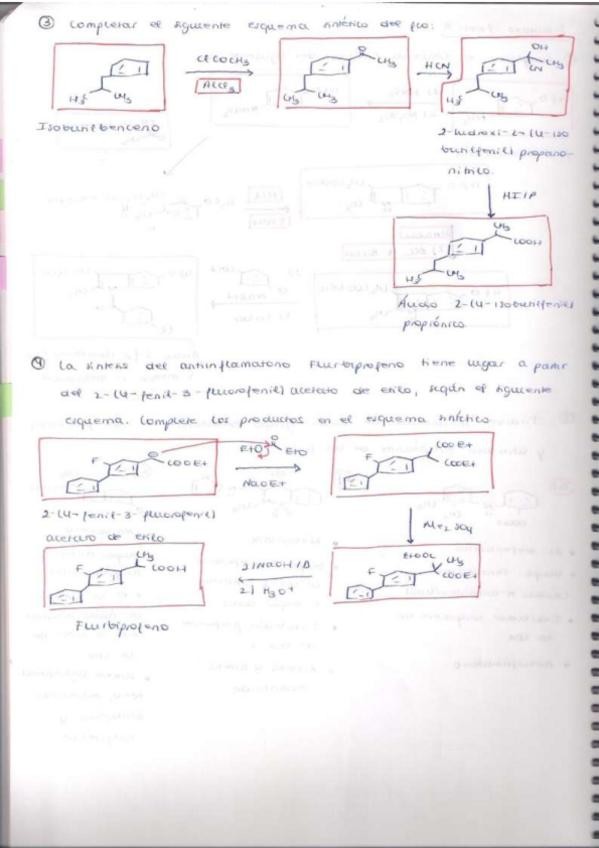 ③ Completar el siguiente esquema sintético del fco:
ClCOCH₃
AlCl₃
O
CH₃
HCN
OH
CH₃
CN
H₃C
CH₃
H₃C
CH₃
H₃C
CH₃
Isobutilbenceno
2-hidroxi-2-(4-iso
butilfenil) propano-
nitrilo.
HI/P
CH₃
COOH
H₃C
CH₃
Ácido 2-(4-isobutilfenil)
propiónico
④ La síntesis del antiinflamatorio Flurbiprofeno tiene lugar a partir
del 2-(4-fenil-3-fluorofenil) acetato de etilo, según el siguiente
esquema. Complete los productos en el esquema sintético
F
COOEt
EtO
O
EtO
NaOEt
F
COOEt
COOEt
2-(4-fenil-3-fluorofenil)
acetato de etilo
Me₂SO₄
CH₃
F
COOH
1) NaOH/Δ
2) H₃O⁺
EtOOC
CH₃
F
COOEt
Flurbiprofeno